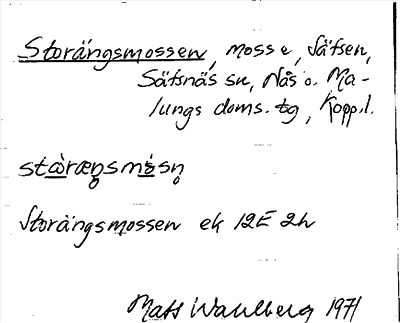 Storängsmossen, mosse, Säfsen,
Säfsnäs sn, Nås o. Ma-
lungs doms. tg, Kopp. l.
stò̱ræŋsmò̱sn̥
Storängsmossen ek 12E 2h
Mats Wahlberg 1971